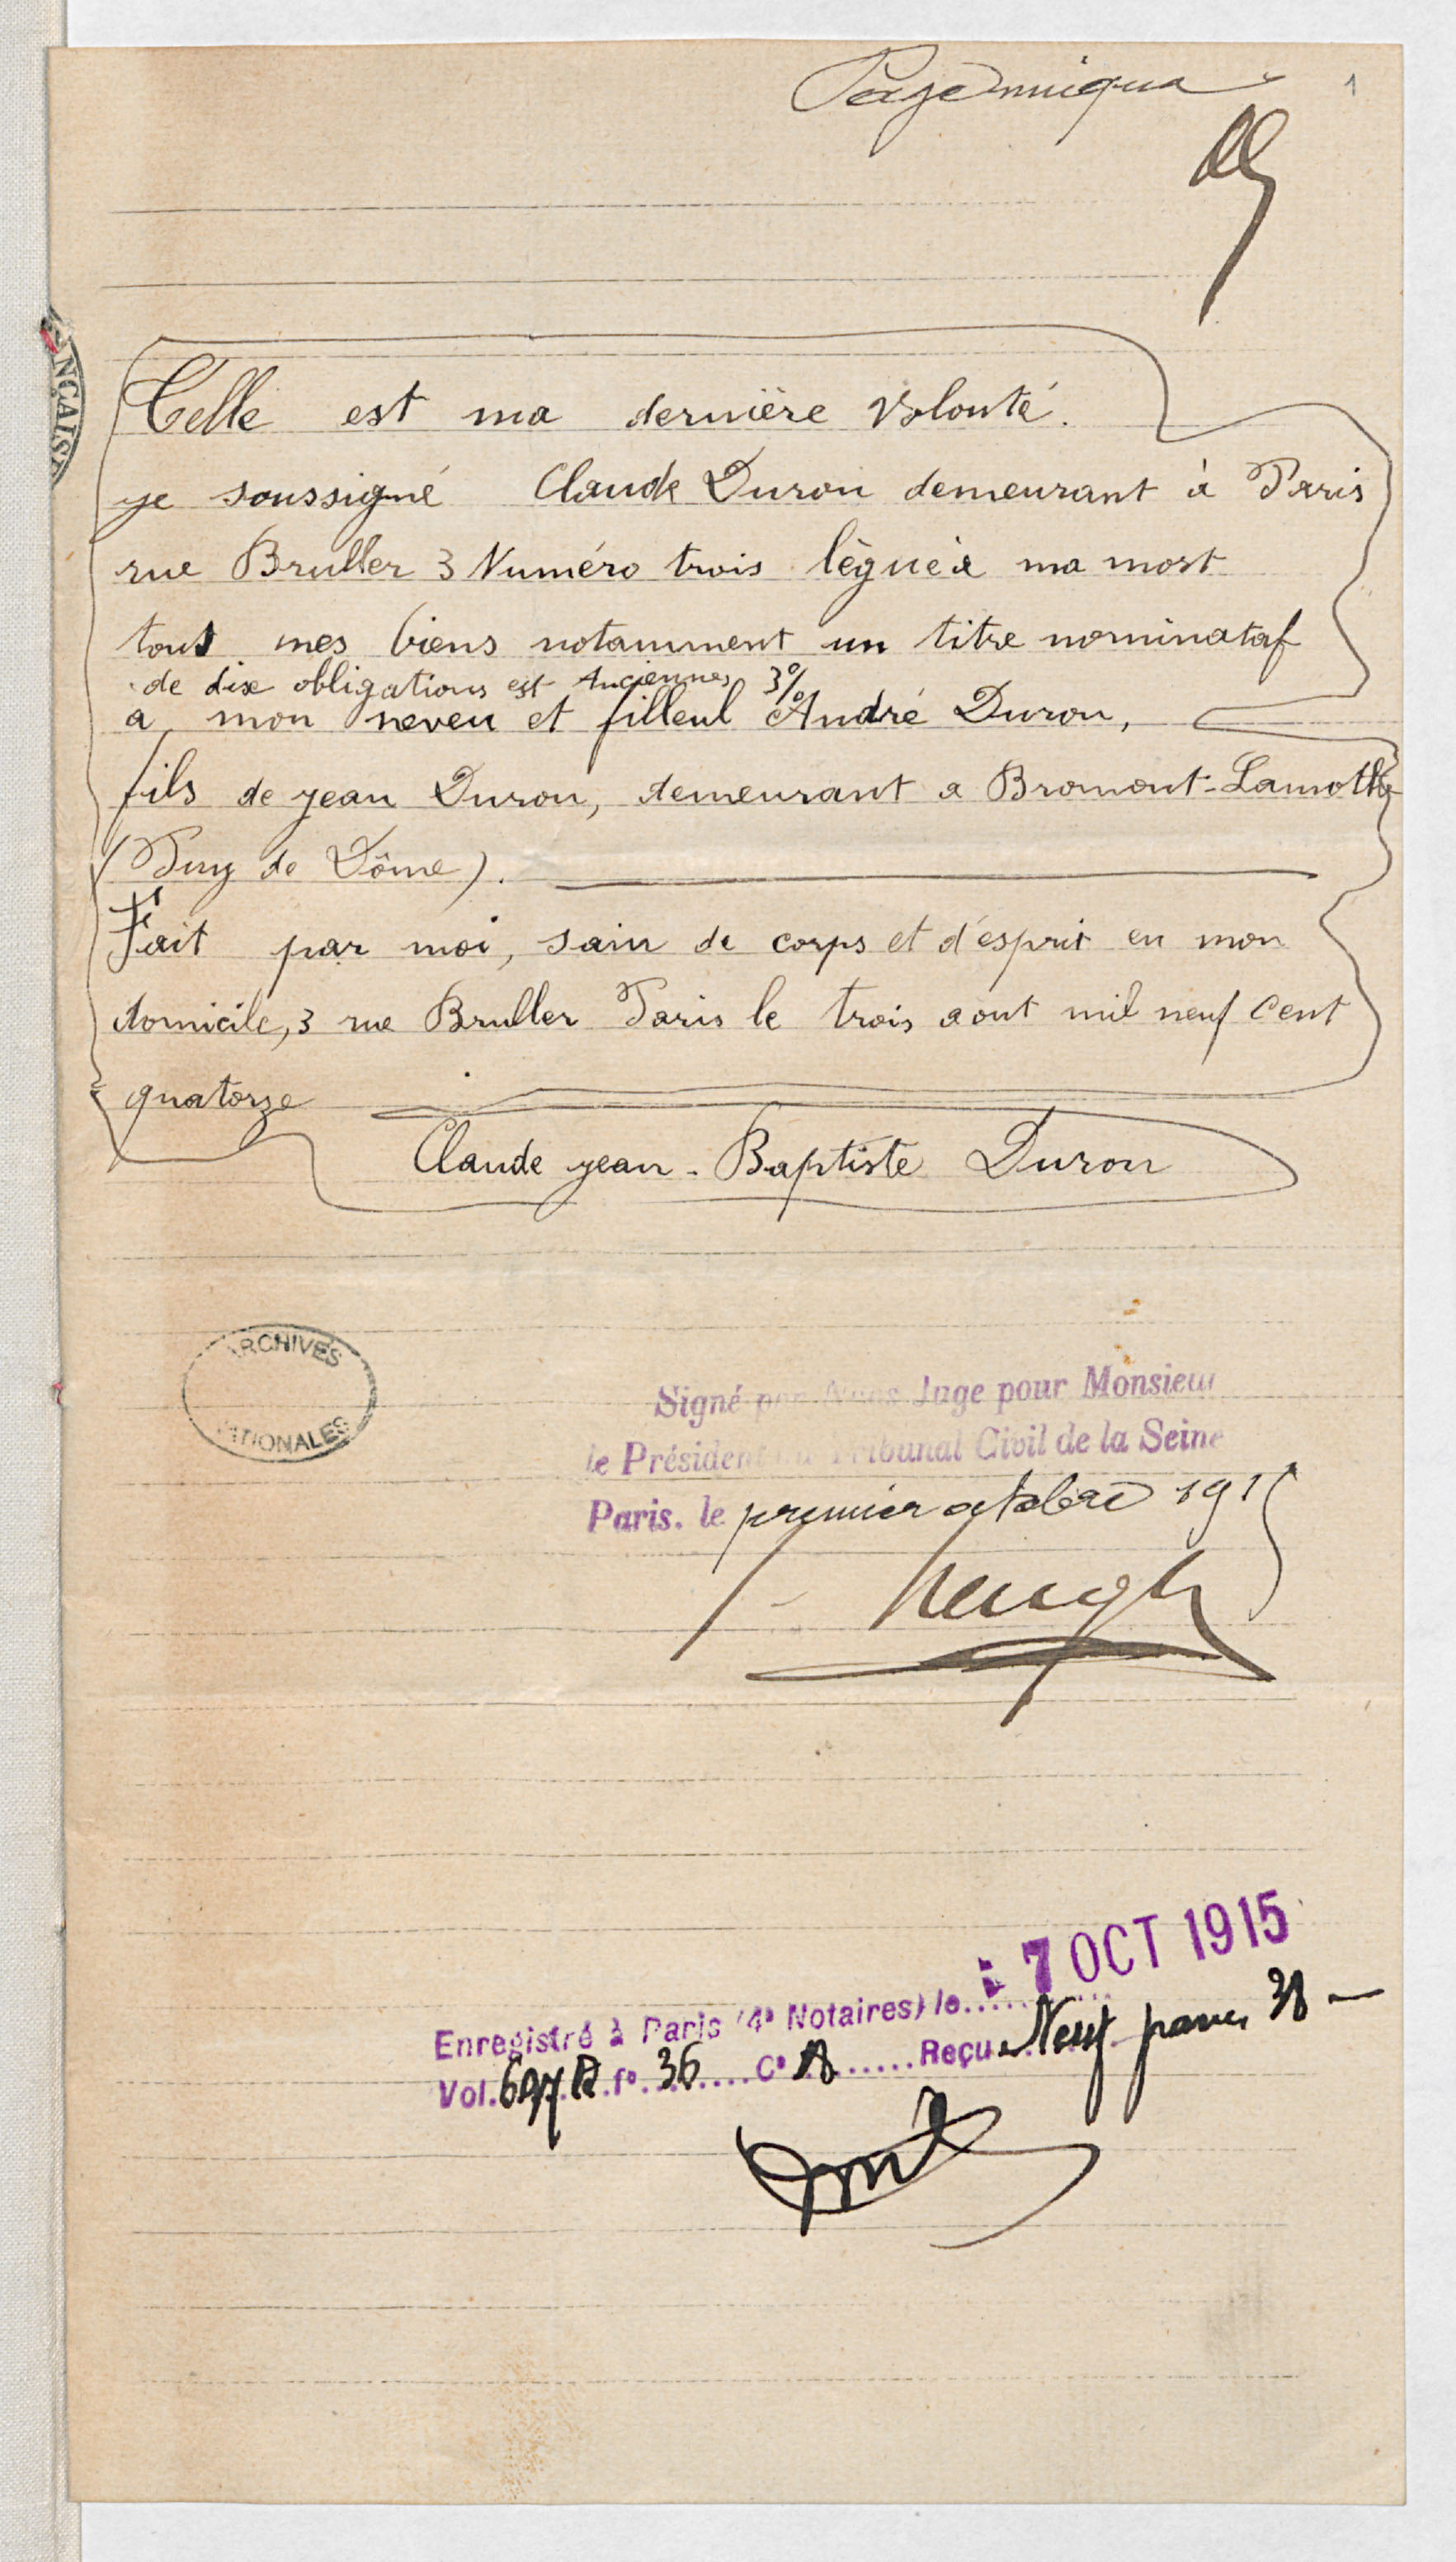 Page unique
1
NÇAISE
Telle est ma dernière volonté.
je soussigné Claude Duron demeurant à Paris
rue Bruller 3 Numéro trois lègue à ma mort
tous mes biens notamment un titre nominataf
de dix obligations est Anciennes 3%
a mon neveu et filleul André Duron,
fils de jean Duron, demeurant a Bromont-Lamothe
(Puy de Dôme).
Fait par moi, sain de corps et d'esprit en mon
domicile, 3 rue Bruller Paris le trois aout mil neuf cent
quatorze
Claude jean-Baptiste Duron
ARCHIVES
NATIONALES
Signé par Nous Juge pour Monsieur
le Président du Tribunal Civil de la Seine
Paris, le premier octobre 1915
7 OCT 1915
Enregistré à Paris (4e Notaires) le
Vol. 697 fo 36 Co 18 Reçu Neuf francs 38